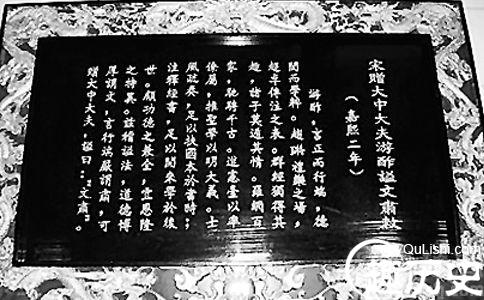 宋贈大中大夫游酢謚文肅敕
（嘉熙二年）
游酢，言正而行端，德
閎而學粹。之場，
超卓傳注之表。群經獨得其
趣，諸子莫遁其情。羅網百
家，馳騁千古。進憲臺以率
僚屬，推聖學以明大義。士
風疏奏，足以扶國本於當時；
注釋經書，足以開來學於後
世。顧功德之兼全，宜恩隆
之特異。茲稽謚法，道德博
厚謂文，言行端嚴謂肅，可
贈大中大夫，謚曰：“文肅”。
QuLishi.com
趣历史